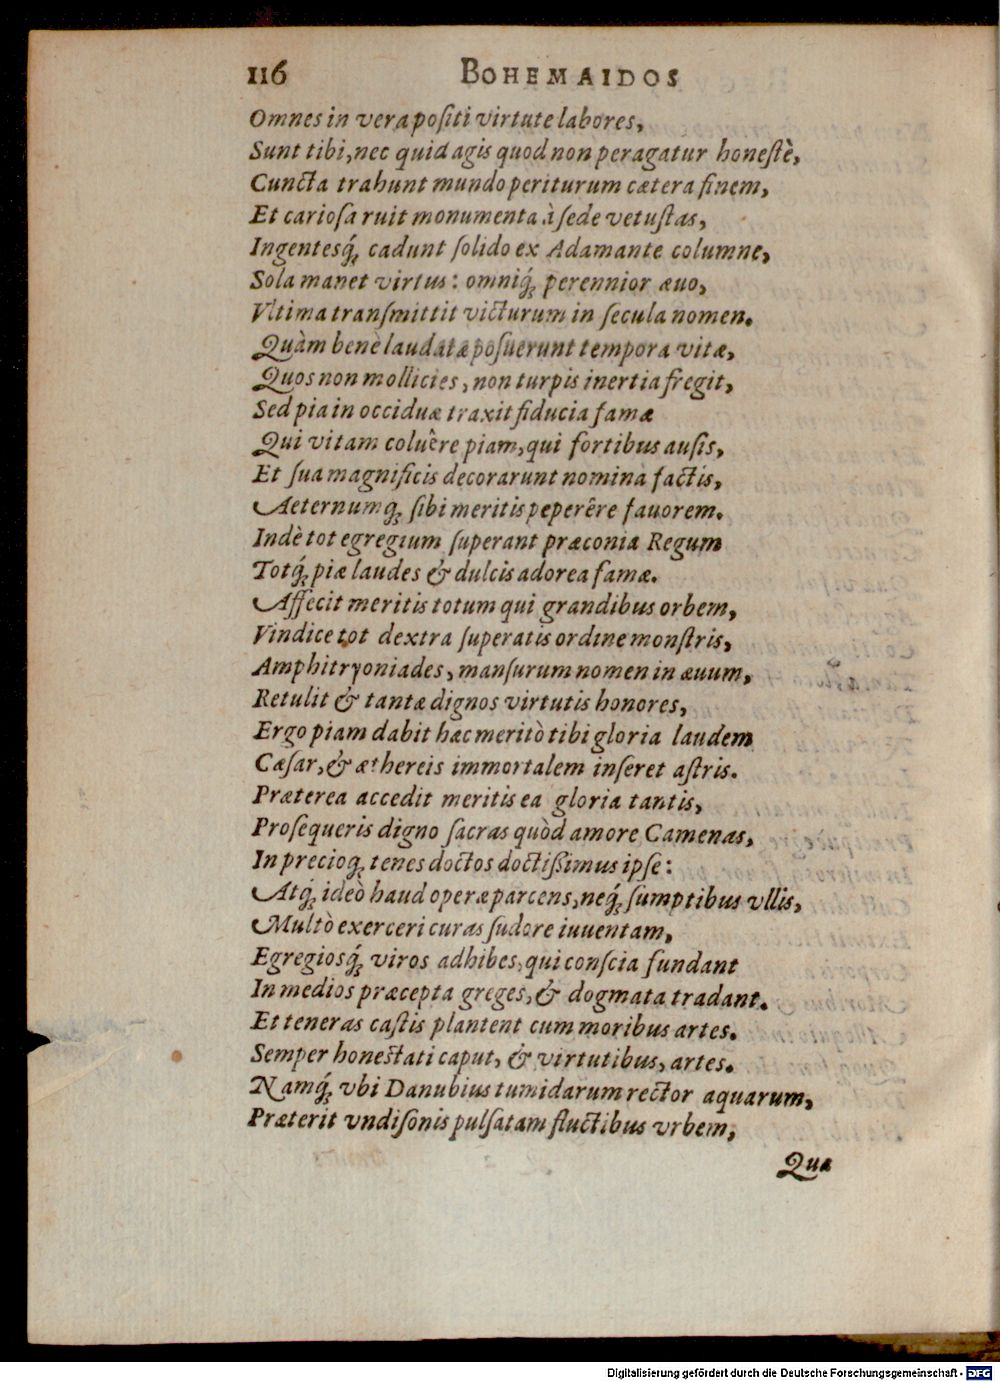 116 BOHEMAIDOS
Omnes in vera poſiti virtute labores,
Sunt tibi, nec quid agis quod non peragatur honeſtè,
Cuncta trahunt mundo periturum cætera finem,
Et carioſa ruit monumenta à ſede vetuſtas,
Ingentesq́; cadunt ſolido ex Adamante columne,
Sola manet virtus: omniq́; perennior æuo,
Vltima tranſmittit victurum in ſecula nomen.
Quàm benè laudatæ poſuerunt tempora vitæ,
Quos non mollicies, non turpis inertia fregit,
Sed pia in occiduæ traxit fiducia famæ
Qui vitam coluêre piam, qui fortibus auſis,
Et ſua magnificis decorarunt nomina factis,
Aeternumq; ſibi meritis peperêre fauorem.
Indè tot egregium ſuperant præconia Regum
Totq́; piæ laudes & dulcis adorea famæ.
Affecit meritis totum qui grandibus orbem,
Vindice tot dextra ſuperatis ordine monſtris,
Amphitryoniades, manſurum nomen in æuum,
Retulit & tantæ dignos virtutis honores,
Ergo piam dabit hac meritò tibi gloria laudem
Cæſar, & æthereis immortalem inſeret aſtris.
Præterea accedit meritis ea gloria tantis,
Proſequeris digno ſacras quòd amore Camenas,
In precioq; tenes doctos doctiſſimus ipſe:
Atq́; ideò haud operæ parcens, neq́; ſumptibus vllis,
Multò exerceri curas ſudore iuuentam,
Egregiosq́; viros adhibes, qui conſcia fundant
In medios præcepta greges, & dogmata tradant.
Et teneras caſtis plantent cum moribus artes.
Semper honeſtati caput, & virtutibus, artes.
Namq́; vbi Danubius tumidarum rector aquarum,
Præterit vndiſonis pulſatam fluctibus vrbem,
Qua
Digitalisierung gefördert durch die Deutsche Forschungsgemeinschaft - DFG